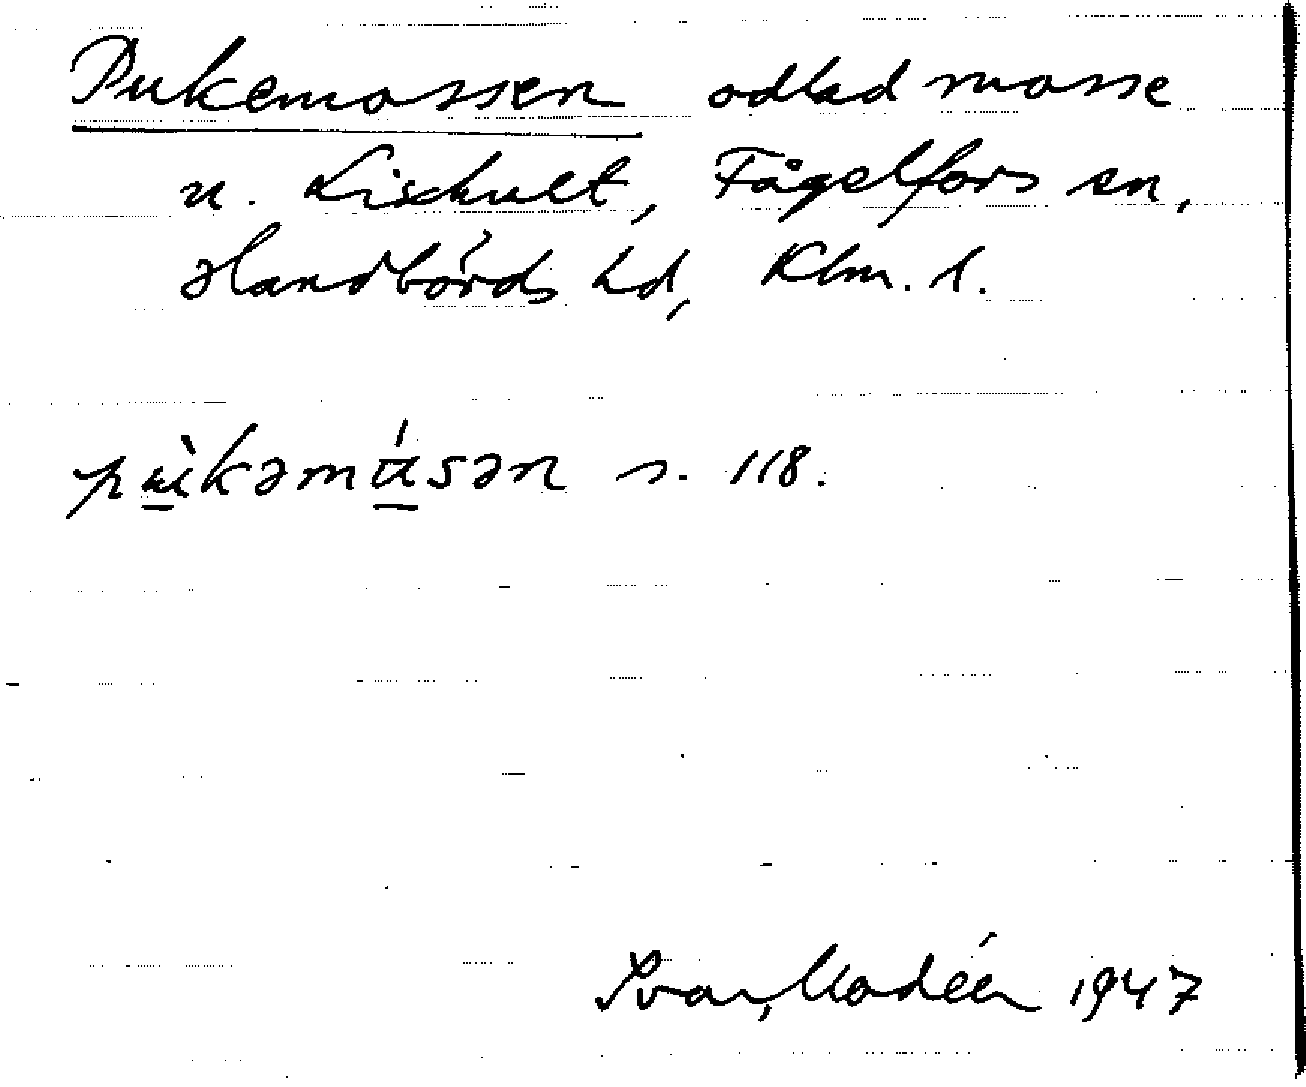 Pukemossen odlad mosse
u. Lixhult, Fågelfors sn,
Handbörds hd, Klm. l.
pù̲kəmɑ̲́sən s. 118.
Ivar Modéer 1947